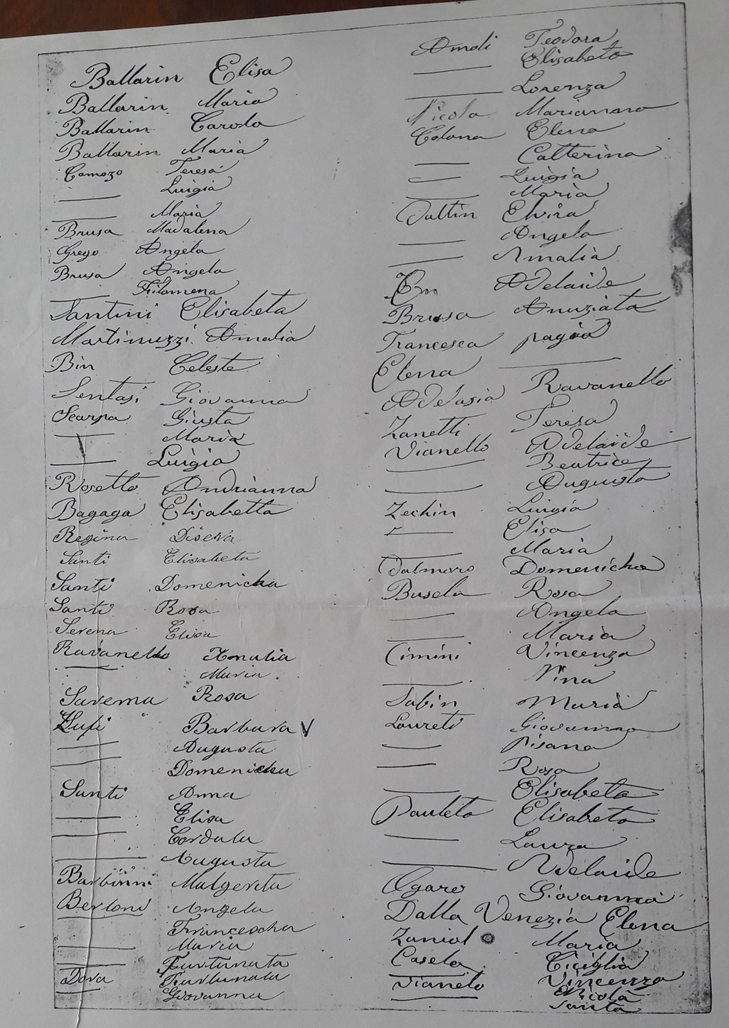 Ballarin Elisa
Ballarin Maria
Ballarin Carola
Ballarin Maria
Camozo Teresa
— Luigia
— Maria
Brusa Madalena
Grego Angela
Brusa Angela
Filomena
Santini Elisabeta
Martinuzzi Amalia
Bin Celeste
Sentasi Giovanna
Scarpa Giusta
— Maria
— Luigia
Rosetto Andrianna
Bagaga Elisabetta
Regina
Santi Elisabeta
Santi Domenicha
Santi Rosa
Serena Elisa
Ravanello Amalia
— Maria
Saverna Rosa
Barbara V
— Augusta
— Domenicha
Santi Anna
— Elisa
— Cordula
— Augusta
Barbinni Malgerita
Bertoni Angela
— Francescha
— Maria
— Fortunata
Dova Fortunata
Giovanna
Amoli Teodora
— Elisabeta
— Lorenza
Nicola Marianna
Colona Elena
— Catterina
— Luigia
— Maria
Dattin Elvira
— Angela
— Amalia
Adelaide
Brusa Anuziata
Francesca
Elena —
Adelasia Ravanello
Zanetti Teresa
Vianello Adelaide
— Beatrice
— Augusta
Zechin Luigia
— Elisa
— Maria
Dalmaro Domenicha
Busela Rosa
— Angela
— Maria
Cimini Vincenza
— Nina
Sabin Maria
Laureti Giovanna
— Pisana
— Rosa
— Elisabeta
Pauleta Elisabeta
— Laura
— Adelaide
Agaro Giovanna
Dalla Venezia Elena
Zaniol Maria
Casela Ciciglia
Vianelo Vincenza
— Nicola
Santa